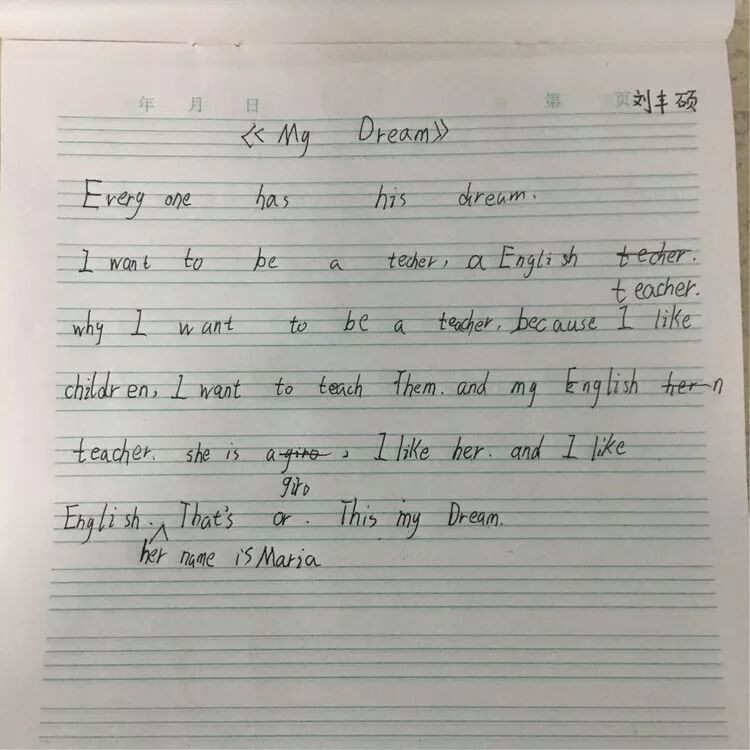 年 月 日 第 页 刘丰硕
《My Dream》
Every one has his dream.
I want to be a techer, a English techer.
teacher.
why I want to be a teacher, because I like
children, I want to teach Them. and my English her n
teacher. she is a giro, I like her. and I like
giro
English. That's or. This my Dream.
her name is Maria